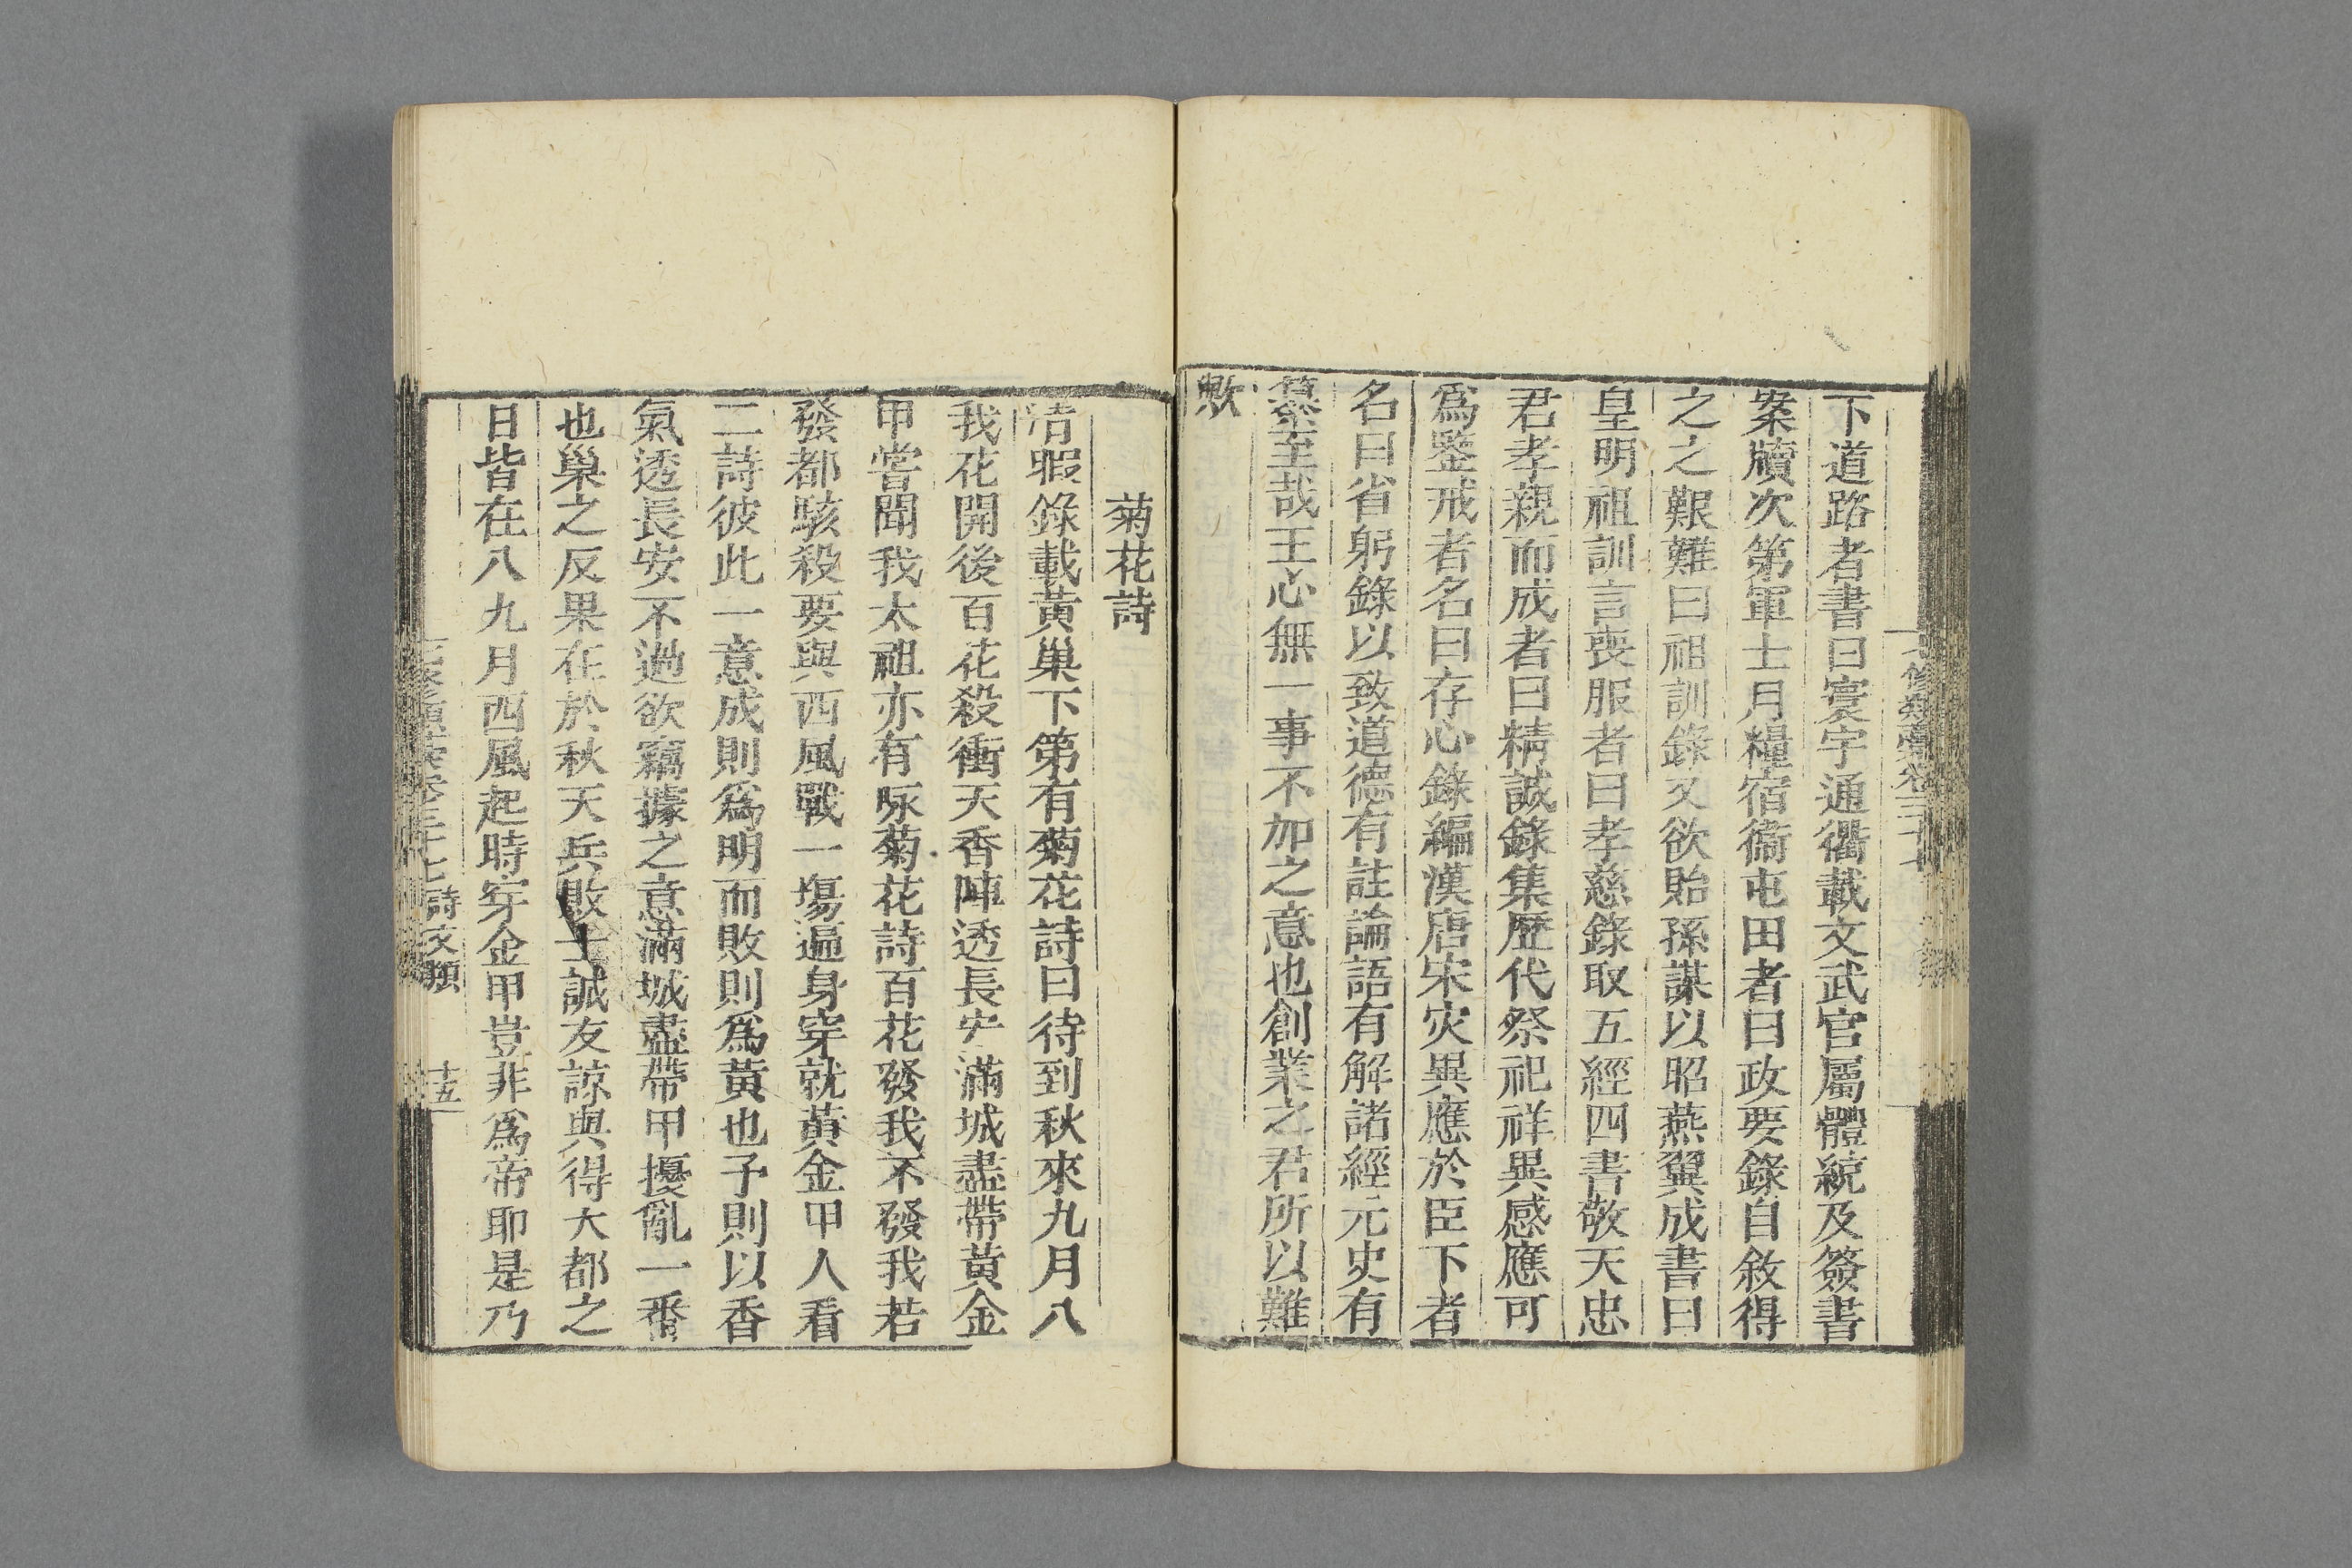 下道路者書曰寰宇通衢載文武官屬體統及簽書
案牘次第軍士月糧宿衞屯田者曰政要錄自敘得
之之艱難曰祖訓錄又欲貽孫謀以昭燕翼成書曰
皇明祖訓言喪服者曰孝慈錄取五經四書敬天忠
君孝親而成者曰精誠錄集歷代祭祀祥異感應可
爲鑒戒者名曰存心錄編漢唐宋灾異應於臣下者
名曰省躬錄以致道德有註論語有解諸經元史有
纂至哉王心無一事不加之意也創業之君所以難
歟
菊花詩
清暇錄載黃巢下第有菊花詩曰待到秋來九月八
我花開後百花殺衝天香陣透長安滿城盡帶黃金
甲嘗聞我太祖亦有咏菊花詩百花發我不發我若
發都駭殺要與西風戰一塲遍身穿就黃金甲人看
二詩彼此一意成則爲明而敗則爲黃也予則以香
氣透長安不過欲竊據之意滿城盡帶甲擾亂一番
也巢之反果在於秋天兵敗士誠友諒與得大都之
日皆在八九月西風起時穿金甲豈非爲帝耶是乃
詩文類
十五